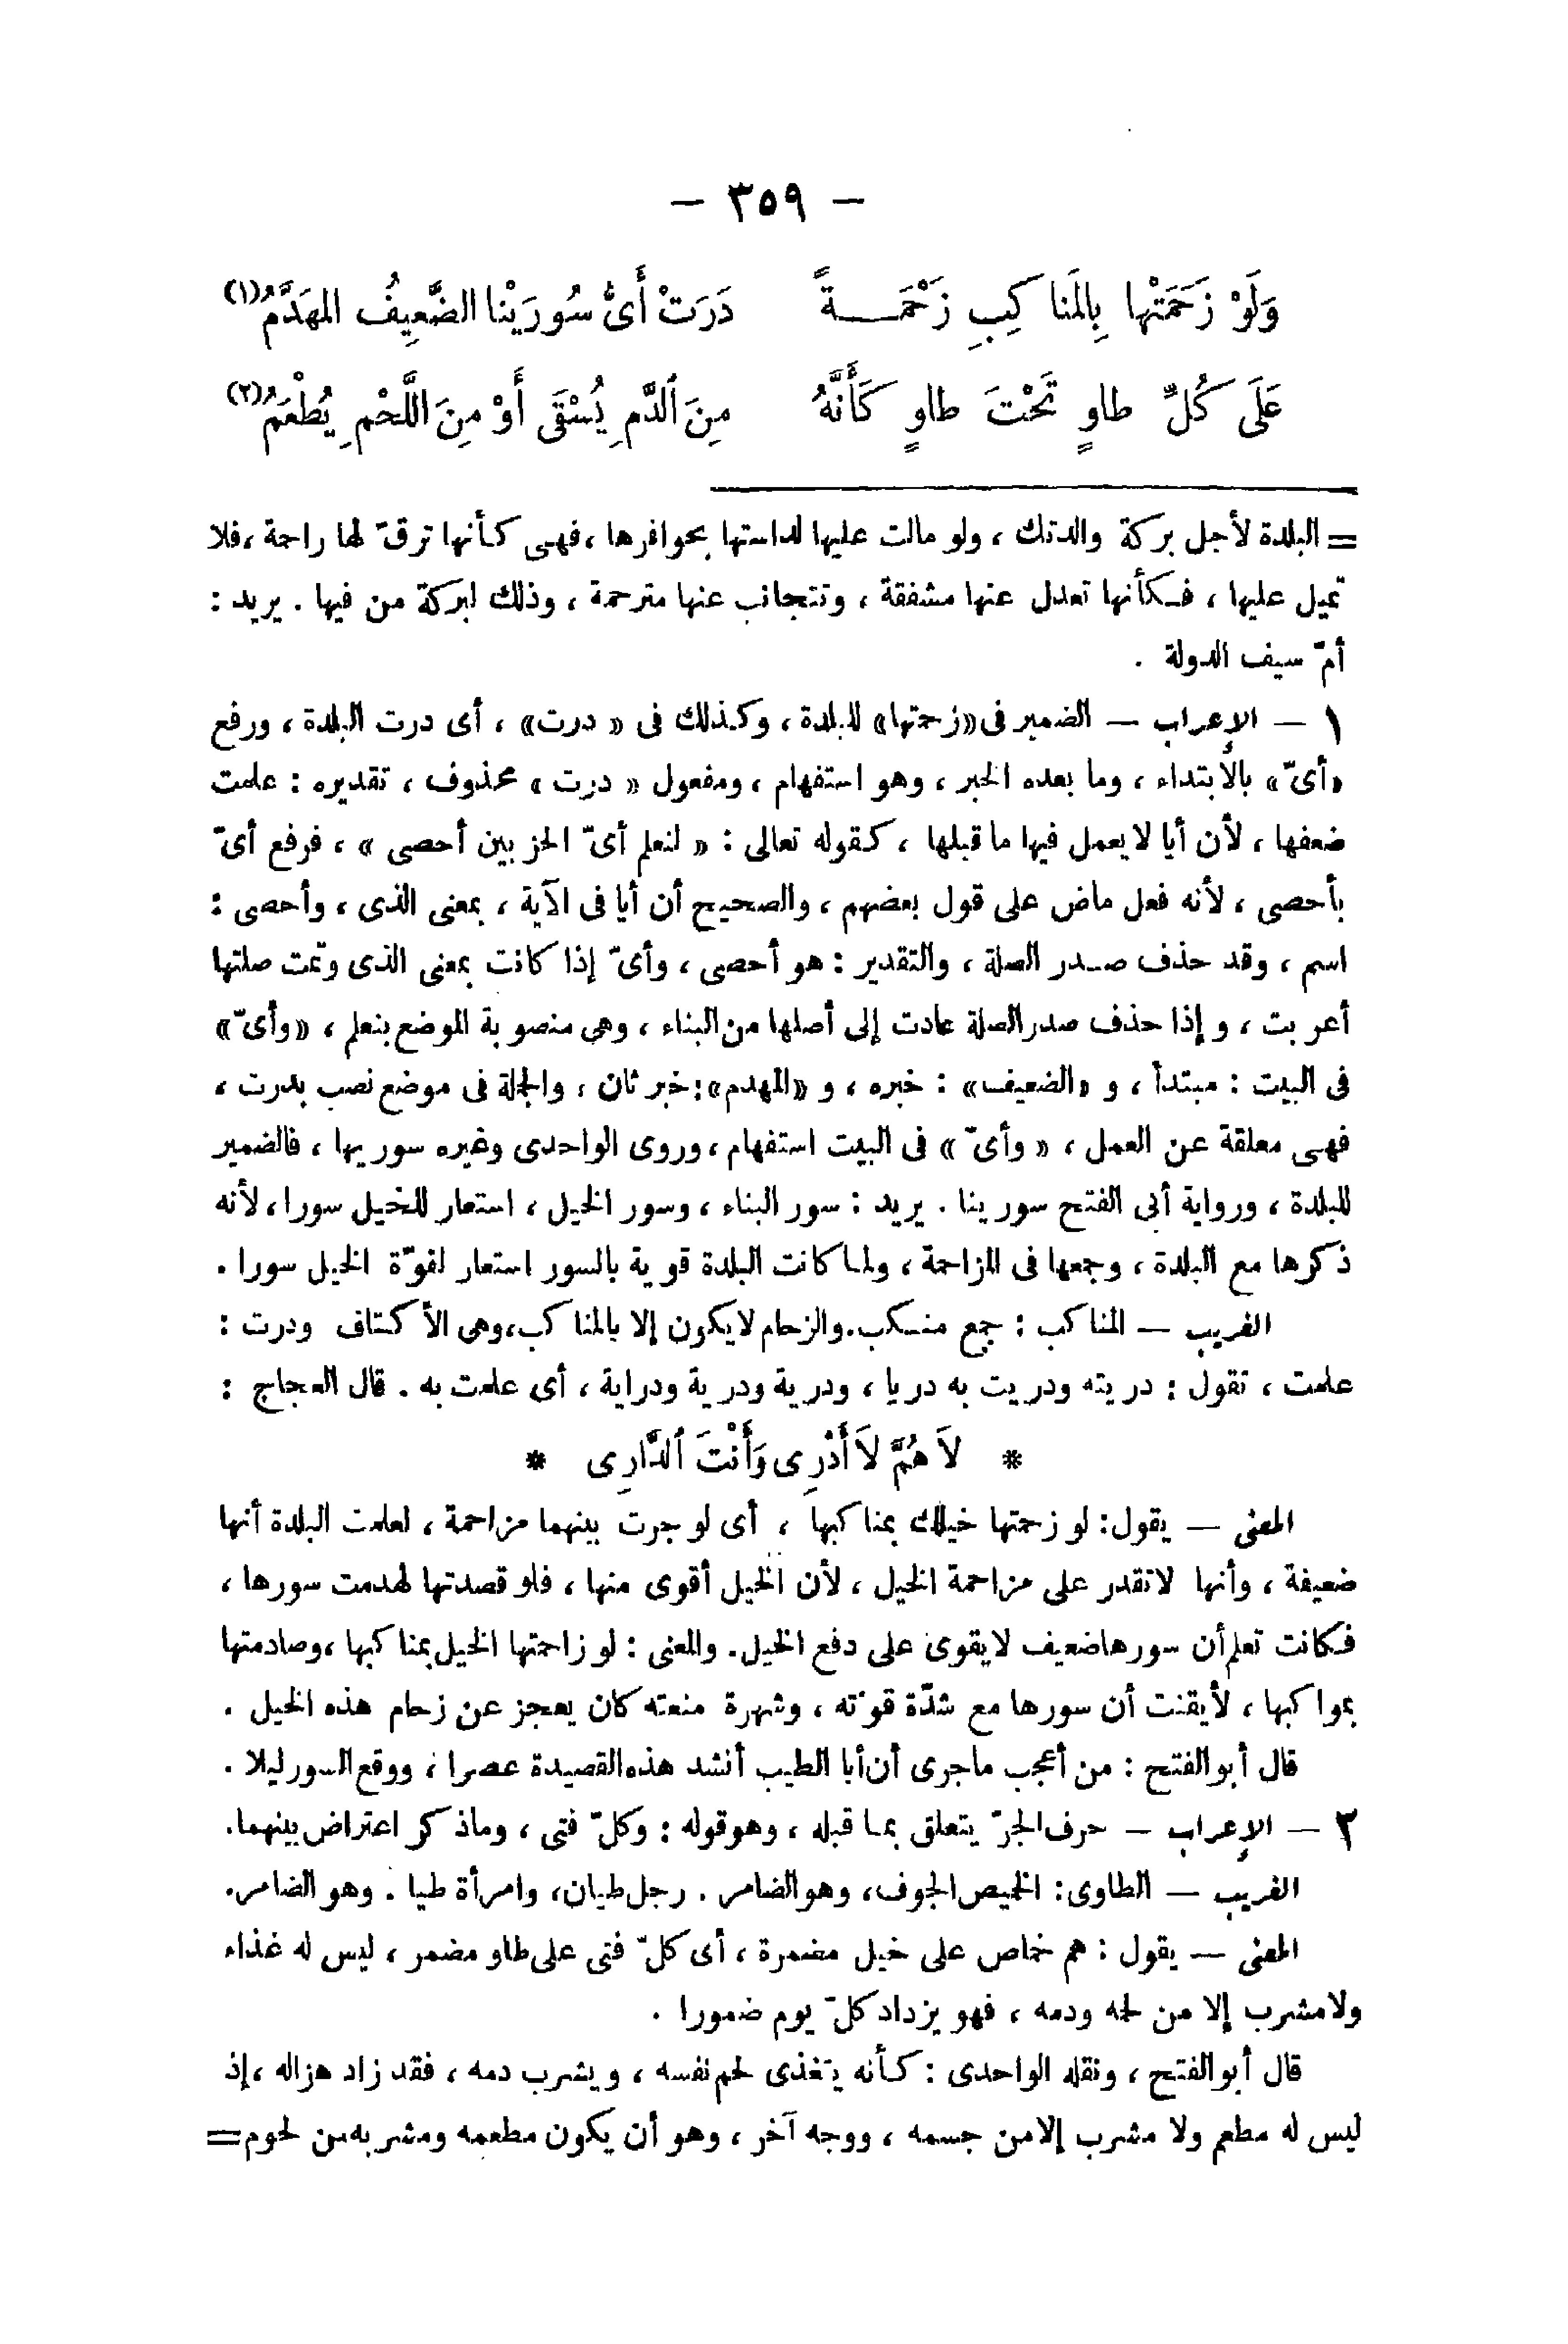 — ٣٥٩ —
وَلَوْ زَحَمَتْها بِالمَناكِبِ زَحْمَــةً دَرَتْ أَىُّ سُورَيْنا الضَّعِيفُ المهَدَّمُ (١)
عَلَى كُلِّ طاوٍ تَحْتَ طاوٍ كَأَنَّهُ مِنَ ٱلدَّمِ يُسْقَى أَوْ مِنَ اللَّحْمِ يُطْعَمُ (٢)
= البلدة لأجل بركة والدتك ، ولو مالت عليها لداستها بحوافرها ، فهى كأنها ترقّ لها راحمة ، فلا
تميل عليها ، فكأنها تعدل عنها مشفقة ، وتتجانب عنها مترحمة ، وذلك لبركة من فيها . يريد :
أمّ سيف الدولة .
١ — الإعراب — الضمير فى «زحمتها» للبلدة ، وكذلك فى « درت» ، أى درت البلدة ، ورفع
«أىّ» بالابتداء ، وما بعده الخبر ، وهو استفهام ، ومفعول « درت » محذوف ، تقديره : علمت
ضعفها ، لأن أيا لا يعمل فيها ما قبلها ، كقوله تعالى : « لنعلم أىّ الحزبين أحصى » ، فرفع أىّ
بأحصى ، لأنه فعل ماض على قول بعضهم ، والصحيح أن أيا فى الآية ، بمعنى الذى ، وأحصى :
اسم ، وقد حذف صدر الصلة ، والتقدير : هو أحصى ، وأىّ إذا كانت بمعنى الذى وتمت صلتها
أعربت ، وإذا حذف صدر الصلة عادت إلى أصلها من البناء ، وهى منصوبة الموضع بنعلم ، «وأىّ»
فى البيت : مبتدأ ، و «الضعيف» : خبره ، و «المهدم»: خبر ثان ، والجملة فى موضع نصب بدرت ،
فهى معلقة عن العمل ، « وأىّ » فى البيت استفهام ، وروى الواحدى وغيره سوريها ، فالضمير
للبلدة ، ورواية أبى الفتح سورينا . يريد : سور البناء ، وسور الخيل ، استعار للخيل سورا ، لأنه
ذكرها مع البلدة ، وجمعها فى المزاحمة ، ولما كانت البلدة قوية بالسور استعار لقوّة الخيل سورا .
الغريب — المناكب : جمع منكب. والزحام لا يكون إلا بالمناكب، وهى الأكتاف ودرت :
علمت ، تقول : دريته ودريت به دريا ، ودرية ودرية ودراية ، أى علمت به . قال العجاج :
* لَا هُمَّ لَا أَدْرِى وَأَنْتَ ٱلدَّارِى *
المعنى — يقول: لو زحمتها خيلك بمناكبها ، أى لو جرت بينهما مزاحمة ، لعلمت البلدة أنها
ضعيفة ، وأنها لاتقدر على مزاحمة الخيل ، لأن الخيل أقوى منها ، فلو قصدتها لهدمت سورها ،
فكانت تعلم أن سورها ضعيف لايقوى على دفع الخيل. والمعنى : لو زاحمتها الخيل بمناكبها ، وصادمتها
بمواكبها ، لأيقنت أن سورها مع شدّة قوّته ، وشهرة منعته كان يعجز عن زحام هذه الخيل .
قال أبو الفتح : من أعجب ماجرى أن أبا الطيب أنشد هذه القصيدة عصرا ، ووقع السور ليلا .
٢ — الإعراب — حرف الجرّ يتعلق بما قبله ، وهو قوله : وكلّ فتى ، وماذكر اعتراض بينهما.
الغريب — الطاوى: الخميص الجوف، وهو الضامر . رجل طيان، وامرأة طيا . وهو الضامر.
المعنى — يقول : هم خماص على خيل مضمرة ، أى كلّ فتى على طاو مضمر ، ليس له غذاء
ولا مشرب إلا من لحمه ودمه ، فهو يزداد كلّ يوم ضمورا .
قال أبو الفتح ، ونقله الواحدى : كأنه يتغذى لحم نفسه ، ويشرب دمه ، فقد زاد هزاله ، إذ
ليس له مطعم ولا مشرب إلا من جسمه ، ووجه آخر ، وهو أن يكون مطعمه ومشربه من لحوم =